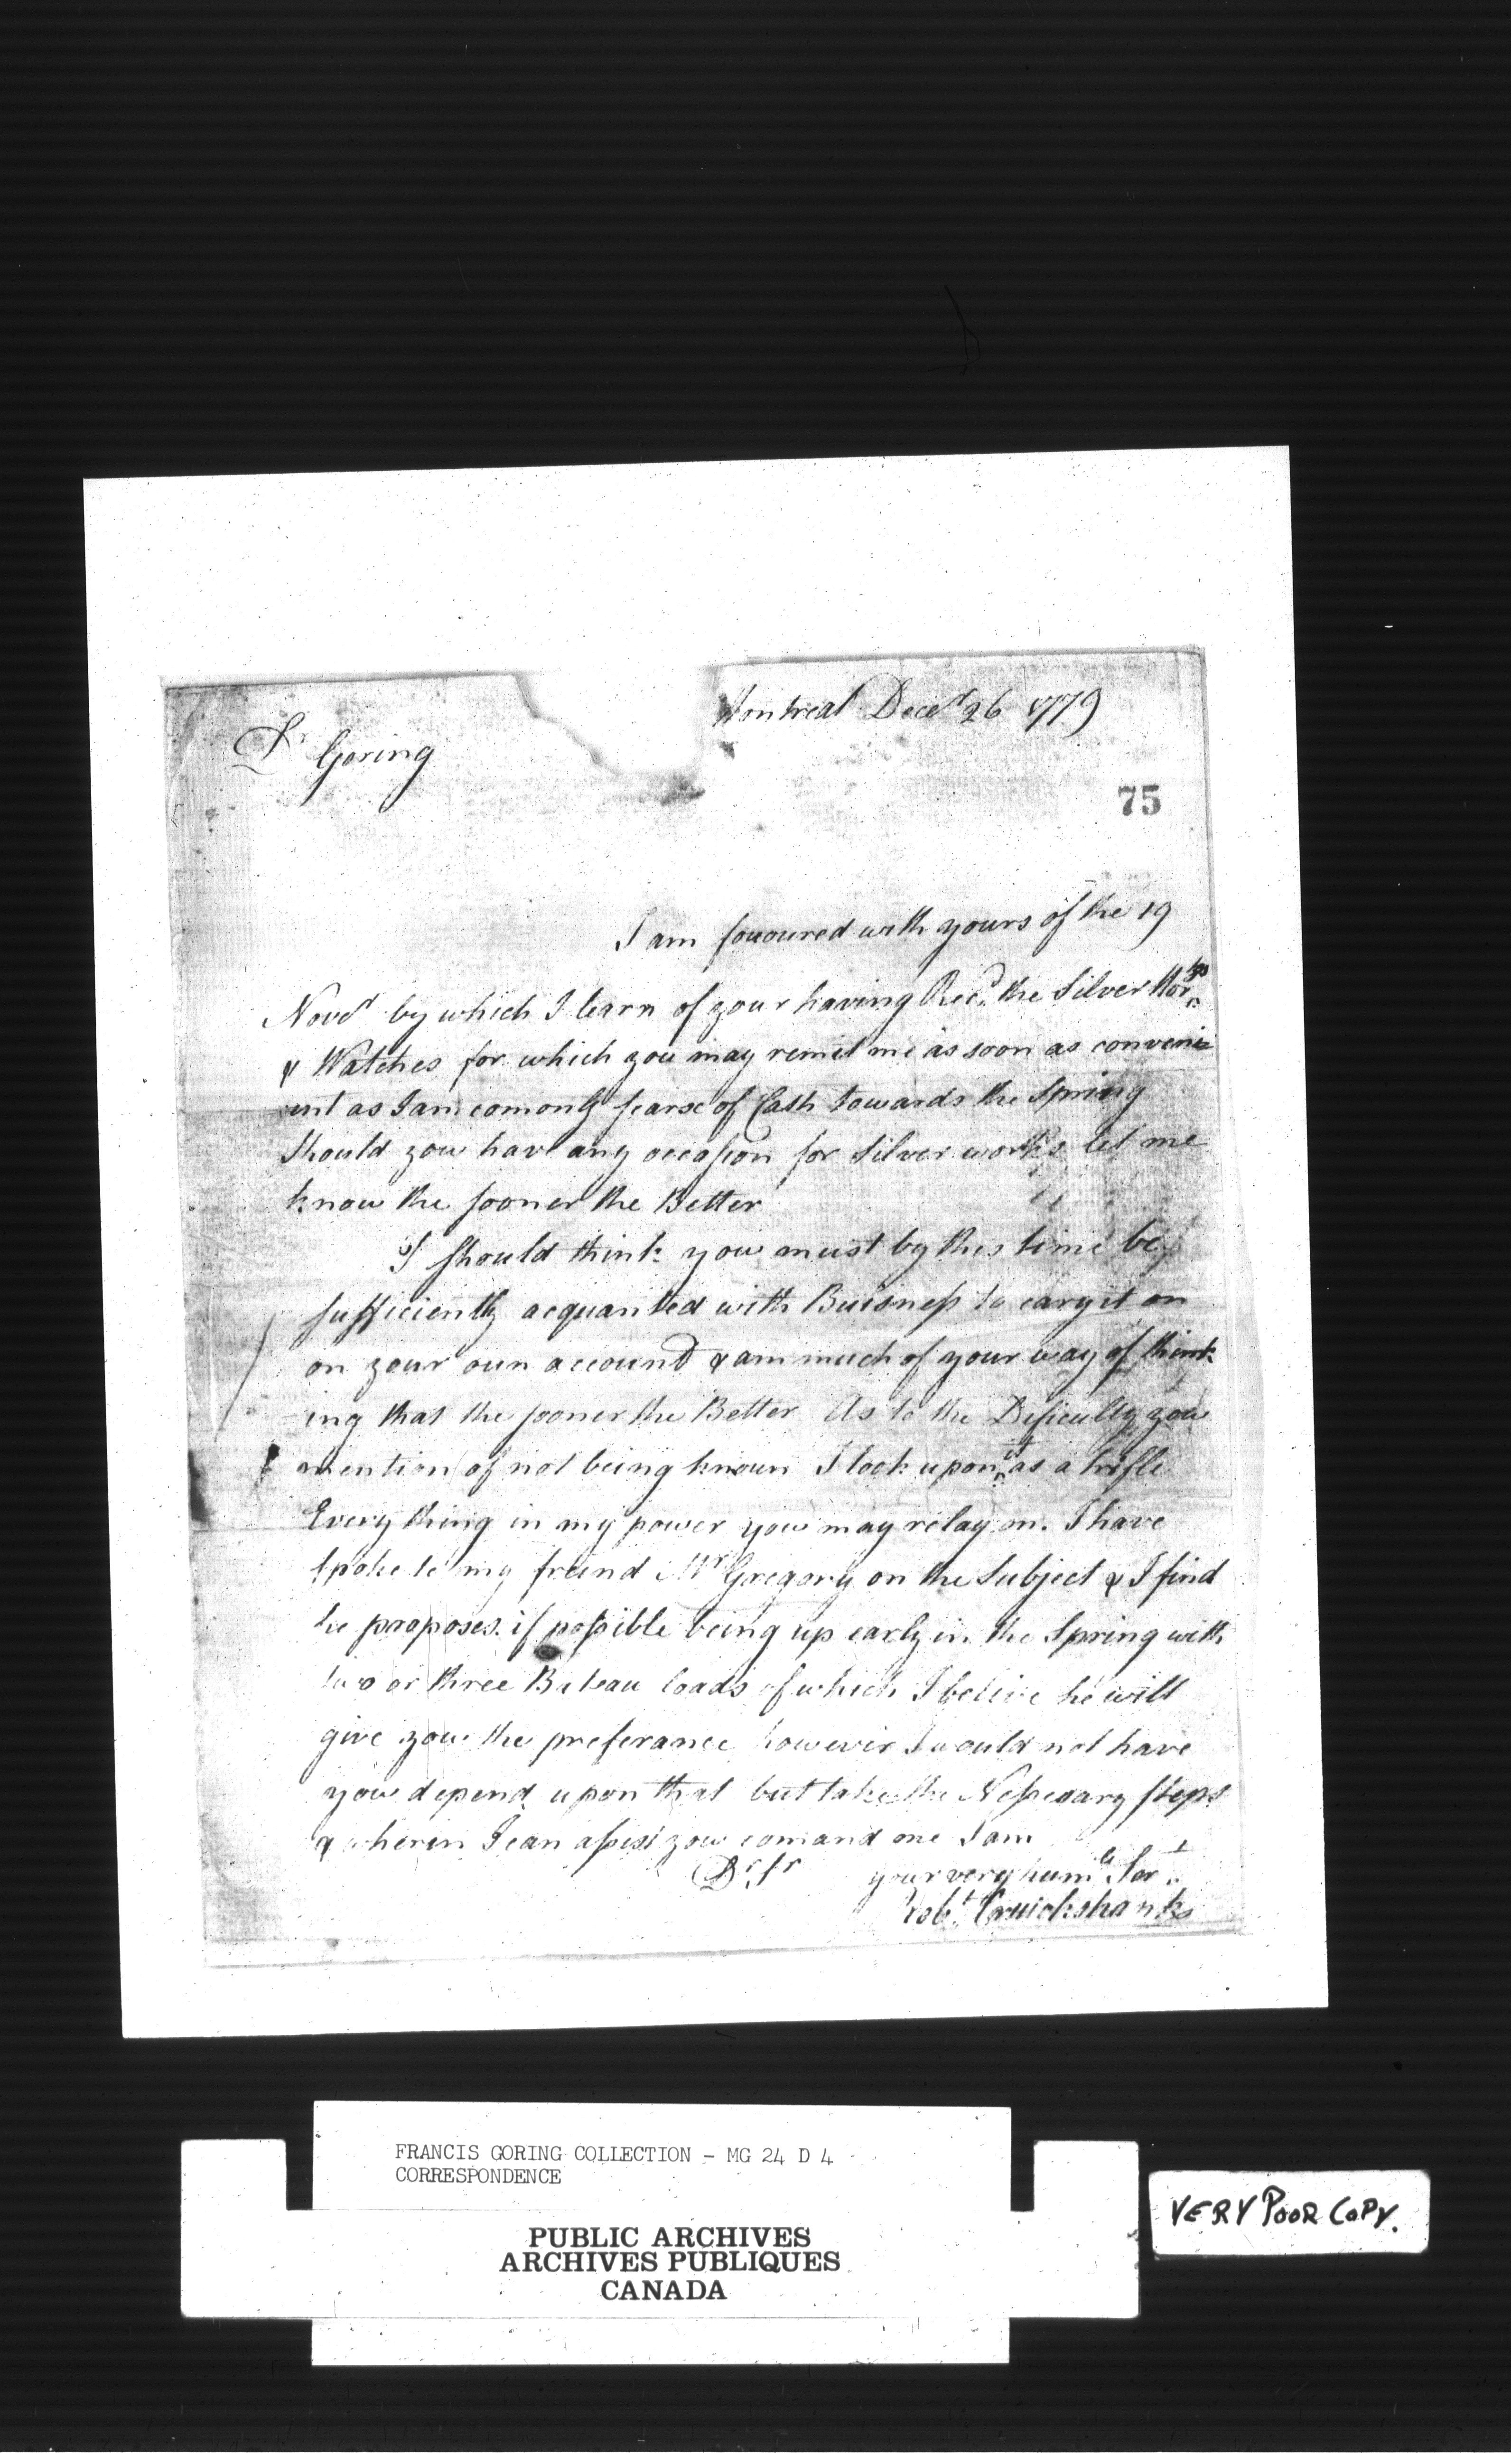 Montreal Decer 26 1779
Sr Goring
75
I am favoured with yours of the 19
Novr by which I learn of your having Recd. the Silver
& Watches for which you may remit me as soon as conveni
ent as I am comonly scarse of Cash towards the Spring
Should you have any occasion for Silver works let me
know the sooner the Better
I should think you must by this time be
sufficiently acquanted with Buisness to cary it on
on your oun account & am much of your way of think
-ing that the sooner the Better As to the Dificulty you
mention of not being knoun I look upon it as a trifle
Every thing in my power you may relay on. I have
spoke to my freind Mr Gregory on the Subject & I find
he proposes if possible being up early in the Spring with
two or three Bateau loads of which I belive he will
give you the preferance however I would not have
you depend upon that but take the Nessesary steps
& wherin I can assist you comand me I am
Dr. Sr your very huml Sert
Robt. Cruickshank
FRANCIS GORING COLLECTION - MG 24 D 4
CORRESPONDENCE
PUBLIC ARCHIVES
ARCHIVES PUBLIQUES
CANADA
VERY POOR COPY.